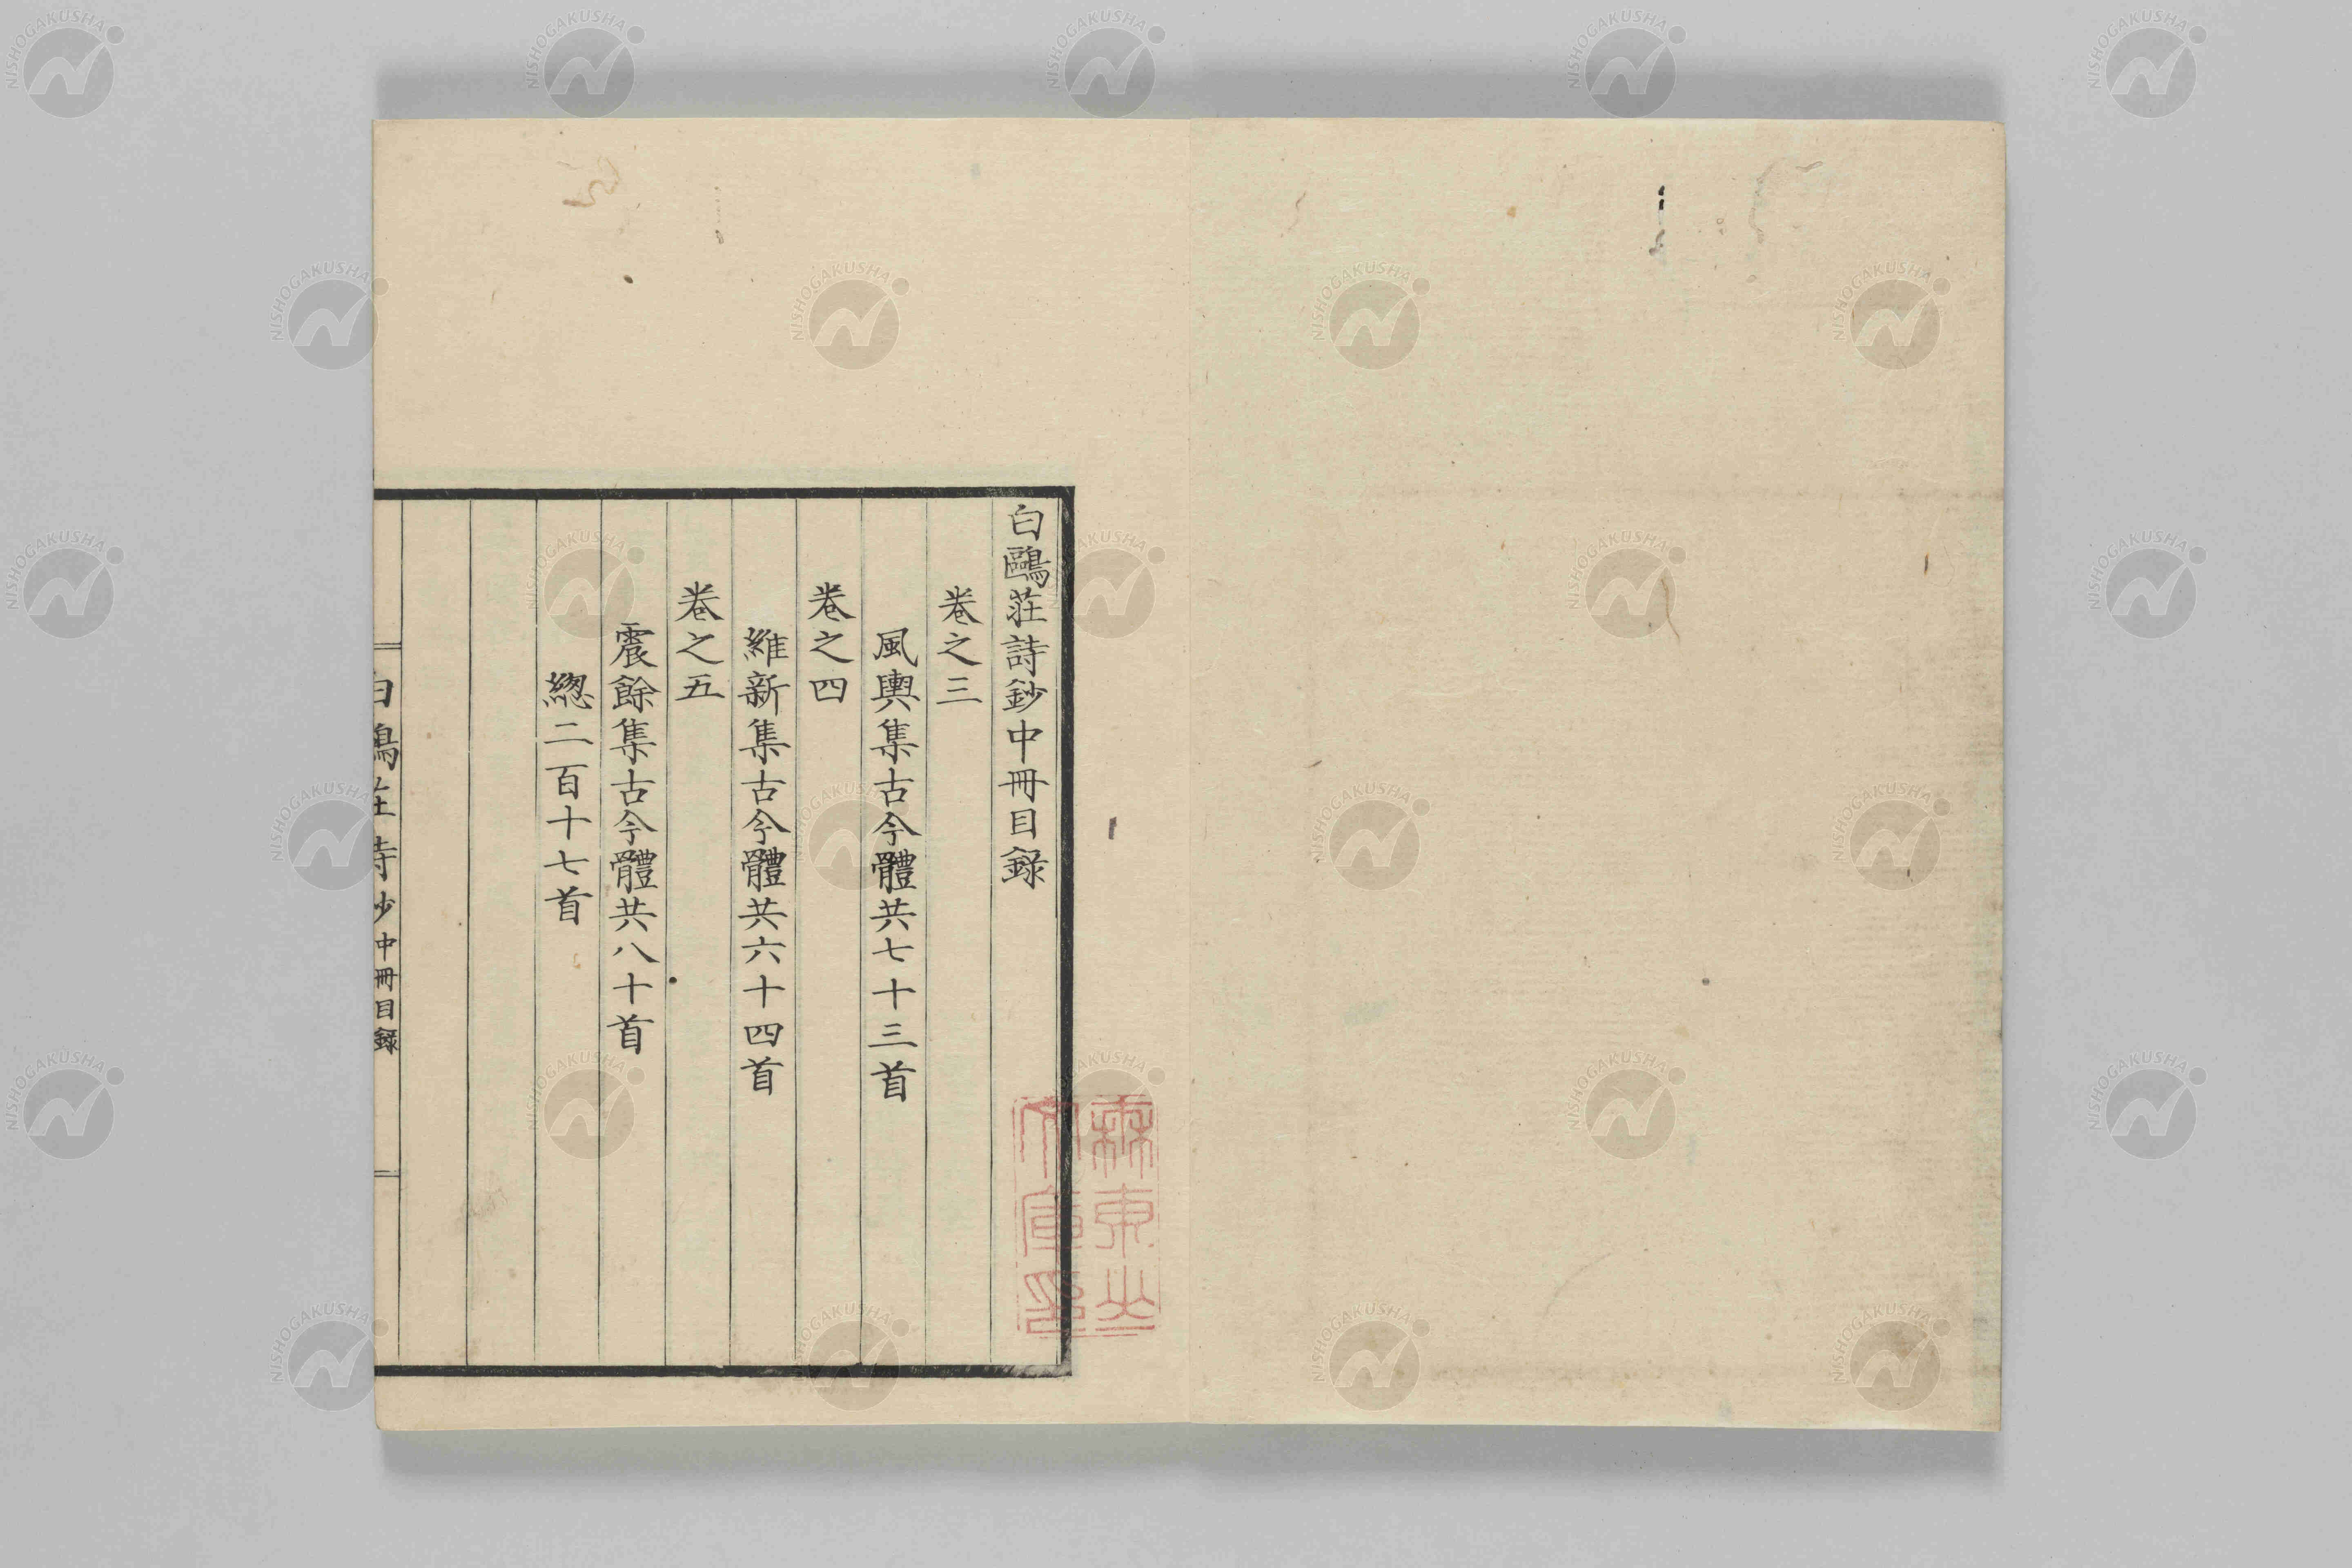 白鷗莊詩鈔中冊目錄
卷之三
風輿集古今體共七十三首
卷之四
維新集古今體共六十四首
卷之五
震餘集古今體共八十首
總二百十七首
白鷗莊詩鈔 中冊目錄
NISHOGAKUSHA